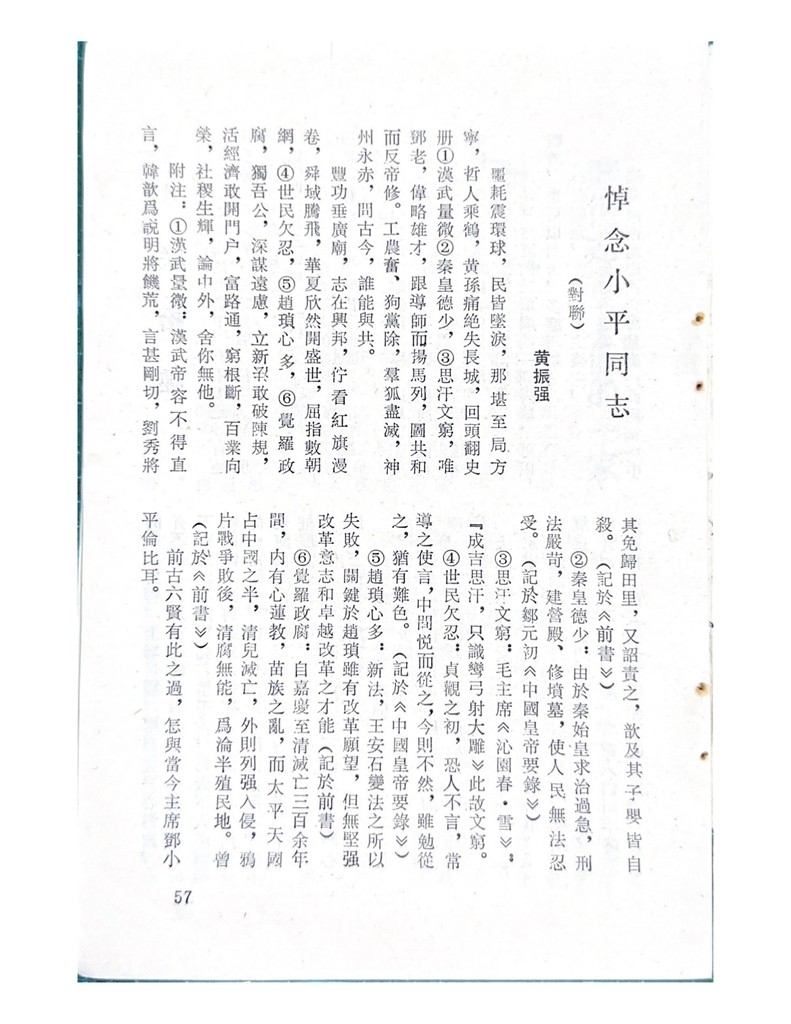 悼念小平同志
(對聯)
黄振强
噩耗震環球，民皆墜淚，那堪至局方
寧，哲人乘鶴，黄孫痛絶失長城，回頭翻史
册①漢武量微②秦皇德少，③思汗文窮，唯
鄧老，偉略雄才，跟導師而揚馬列，圖共和
而反帝修。工農奮、狗黨除，羣狐盡滅，神
州永赤，問古今，誰能與共。
豐功垂廣廟，志在興邦，佇看紅旗漫
卷，舜域騰飛，華夏欣然開盛世，屈指數朝
綱，④世民欠忍，⑤趙瑣心多，⑥覺羅政
腐，獨吾公，深謀遠慮，立新宗敢破陳規，
活經濟敢開門户，富路通，窮根斷，百業向
榮，社稷生輝，論中外，舍你無他。
附注：①漢武量微：漢武帝容不得直
言，韓歆爲説明將饑荒，言甚剛切，劉秀將
其免歸田里，又詔責之，歆及其子嬰皆自
殺。（記於《前書》）
②秦皇德少：由於秦始皇求治過急，刑
法嚴苛，建營殿、修墳墓，使人民無法忍
受。（記於鄒元初《中國皇帝要錄》）
③思汗文窮：毛主席《沁園春·雪》：
『成吉思汗，只識彎弓射大雕》此故文窮。
④世民欠忍：貞觀之初，恐人不言，常
導之使言，中間悦而從之，今則不然，雖勉從
之，猶有難色。（記於《中國皇帝要錄》）
⑤趙瑣心多：新法，王安石變法之所以
失敗，關鍵於趙瑣雖有改革願望，但無堅强
改革意志和卓越改革之才能（記於前書）
⑥覺羅政腐：自嘉慶至清滅亡三百余年
間，内有心蓮教，苗族之亂，而太平天國
占中國之半，清兒滅亡，外則列强入侵，鴉
片戰爭敗後，清腐無能，爲淪半殖民地。曾
（記於《前書》）
前古六賢有此之過，怎與當今主席鄧小
平倫比耳。
57